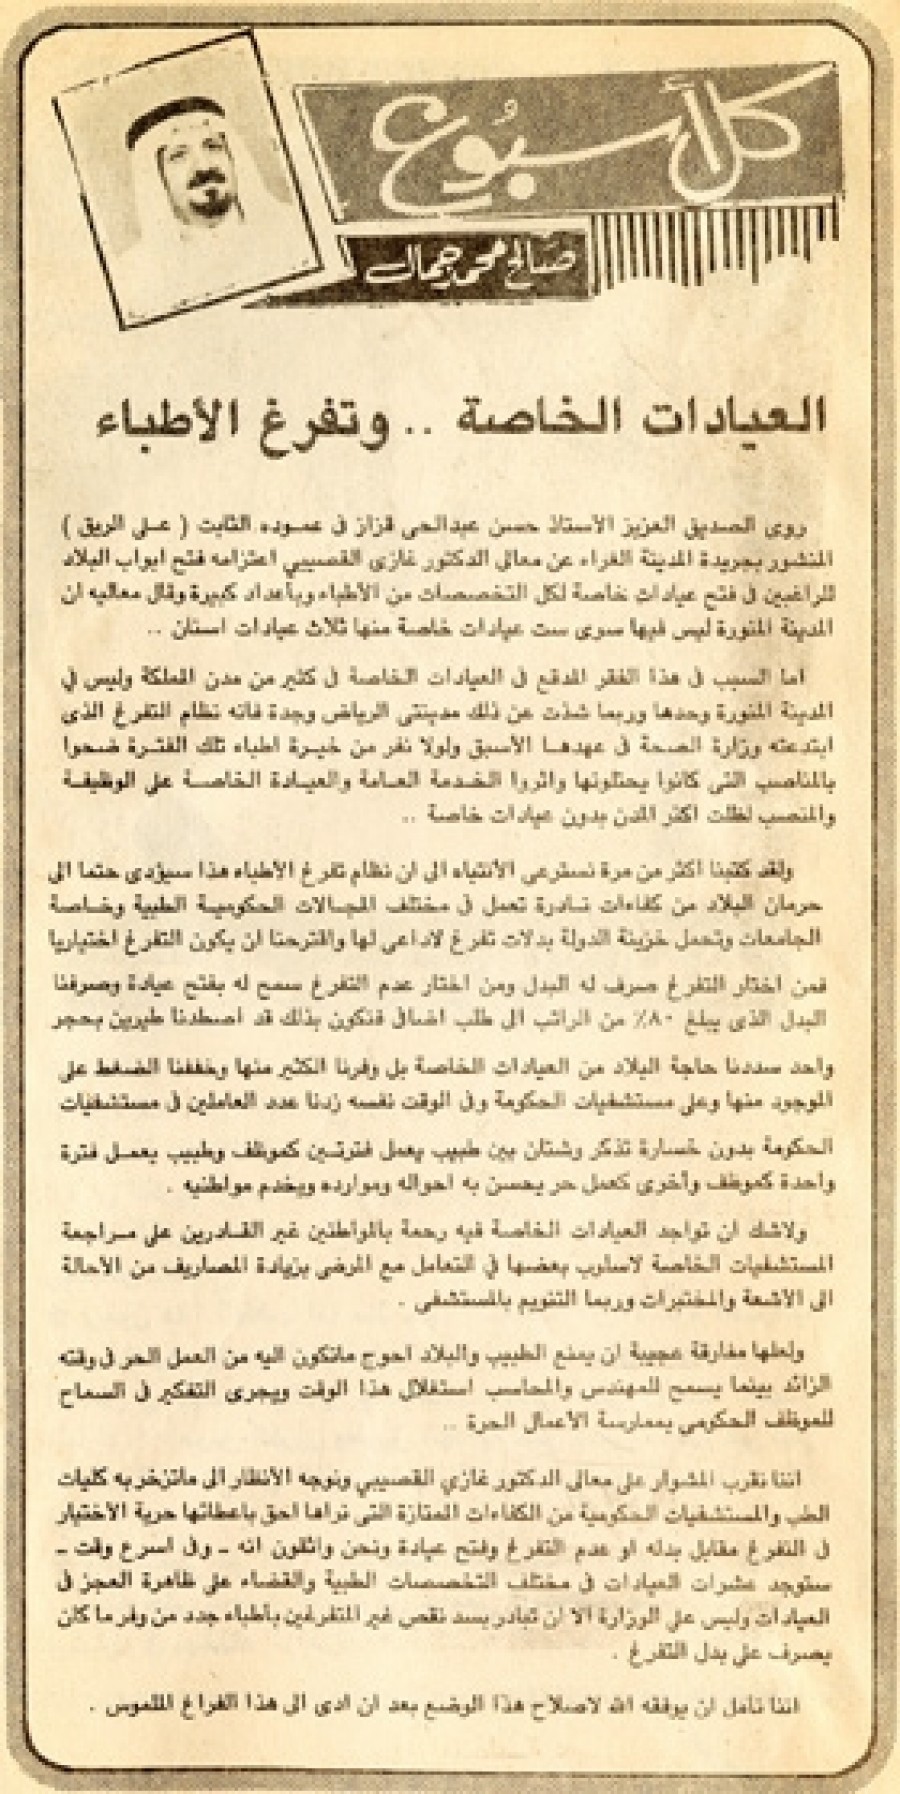 كل أسبوع
صالح محمد جمال
العيادات الخاصة .. وتفرغ الأطباء
روى الصديق العزيز الاستاذ حسن عبدالحى قزاز فى عموده الثابت ( على الريق )
المنشور بجريدة المدينة الغراء عن معالى الدكتور غازى القصيبي اعتزامه فتح ابواب البلاد
للراغبين فى فتح عيادات خاصة لكل التخصصات من الأطباء وبأعداد كبيرة وقال معاليه ان
المدينة المنورة ليس فيها سوى ست عيادات خاصة منها ثلاث عيادات اسنان ..
اما السبب فى هذا الفقر المدقع فى العيادات الخاصة فى كثير من مدن المملكة وليس في
المدينة المنورة وحدها وربما شذت عن ذلك مدينتى الرياض وجدة فانه نظام التفرغ الذى
ابتدعته وزارة الصحة فى عهدها الأسبق ولولا نفر من خيرة اطباء تلك الفترة ضحوا
بالمناصب التى كانوا يحتلونها واثروا الخدمة العامة والعيادة الخاصة على الوظيفة
والمنصب لظلت اكثر المدن بدون عيادات خاصة ..
ولقد كتبنا أكثر من مرة نسترعى الأنتباه الى ان نظام تفرغ الأطباء هذا سيؤدى حتما الى
حرمان البلاد من كفاءات نادرة تعمل فى مختلف المجالات الحكومية الطبية وخاصة
الجامعات وتحمل خزينة الدولة بدلات تفرغ لاداعى لها واقترحنا ان يكون التفرغ اختياريا
فمن اختار التفرغ صرف له البدل ومن اختار عدم التفرغ سمح له بفتح عيادة وصرفنا
البدل الذى يبلغ ٨٠٪ من الراتب الى طلب اضافى فنكون بذلك قد اصطدنا طيرين بحجر
واحد سددنا حاجة البلاد من العيادات الخاصة بل وفرنا الكثير منها وخففنا الضغط على
الموجود منها وعلى مستشفيات الحكومة وفى الوقت نفسه زدنا عدد العاملين فى مستشفيات
الحكومة بدون خسارة تذكر وشتان بين طبيب يعمل فترتين كموظف وطبيب يعمل فترة
واحدة كموظف وأخرى كعمل حر يحسن به احواله وموارده ويخدم مواطنيه .
ولاشك ان تواجد العيادات الخاصة فيه رحمة بالمواطنين غير القادرين على مراجعة
المستشفيات الخاصة لاسلوب بعضها في التعامل مع المرضى بزيادة المصاريف من الاحالة
الى الاشعة والمختبرات وربما التنويم بالمستشفى .
ولعلها مفارقة عجيبة ان يمنع الطبيب والبلاد احوج ماتكون اليه من العمل الحر فى وقته
الزائد بينما يسمح للمهندس والمحاسب استغلال هذا الوقت ويجرى التفكير فى السماح
للموظف الحكومى بممارسة الاعمال الحرة ..
اننا نقرب المشوار على معالى الدكتور غازى القصيبي ونوجه الأنظار الى ماتزخر به كليات
الطب والمستشفيات الحكومية من الكفاءات الممتازة التى نراها احق باعطائها حرية الأختيار
فى التفرغ مقابل بدله او عدم التفرغ وفتح عيادة ونحن واثقون انه ـ وفى اسرع وقت ـ
ستوجد عشرات العيادات فى مختلف التخصصات الطبية والقضاء على ظاهرة العجز فى
العيادات وليس على الوزارة الا ان تبادر بسد نقص غير المتفرغين بأطباء جدد من وفر ما كان
يصرف على بدل التفرغ .
اننا نأمل ان يوفقه الله لاصلاح هذا الوضع بعد ان ادى الى هذا الفراغ الملموس .